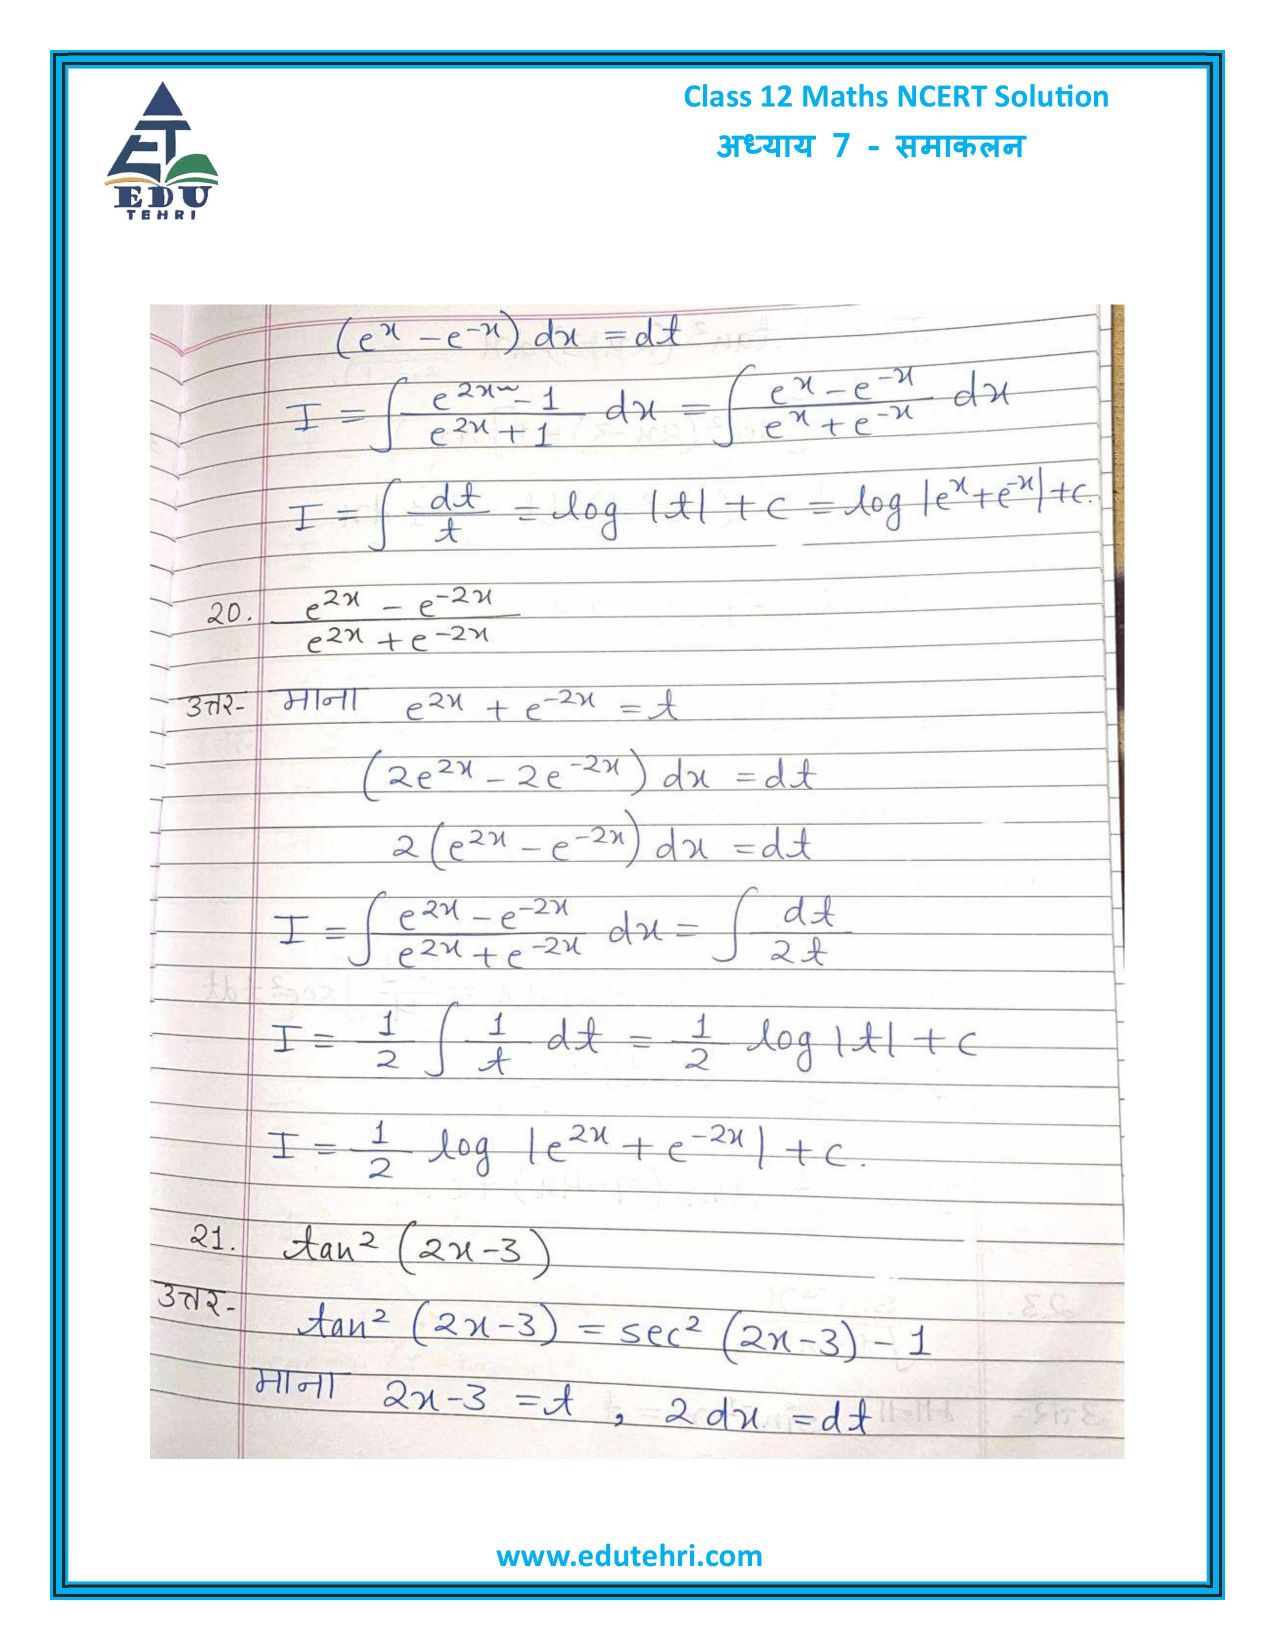 Class 12 Maths NCERT Solution
अध्याय 7 - समाकलन
EDU
TEHRI
(eˣ - e⁻ˣ) dx = dt
I = ∫ (e²ˣ - 1)/(e²ˣ + 1) dx = ∫ (eˣ - e⁻ˣ)/(eˣ + e⁻ˣ) dx
I = ∫ dt/t = log |t| + c = log |eˣ + e⁻ˣ| + c.
20. (e²ˣ - e⁻²ˣ)/(e²ˣ + e⁻²ˣ)
उत्तर- माना e²ˣ + e⁻²ˣ = t
(2e²ˣ - 2e⁻²ˣ) dx = dt
2 (e²ˣ - e⁻²ˣ) dx = dt
I = ∫ (e²ˣ - e⁻²ˣ)/(e²ˣ + e⁻²ˣ) dx = ∫ dt/2t
I = 1/2 ∫ 1/t dt = 1/2 log |t| + c
I = 1/2 log |e²ˣ + e⁻²ˣ| + c.
21. tan² (2x-3)
उत्तर- tan² (2x-3) = sec² (2x-3) - 1
माना 2x-3 = t , 2 dx = dt
www.edutehri.com